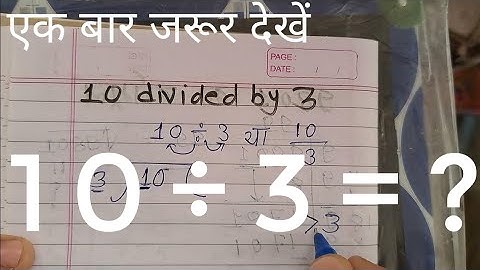 एक बार जरूर देखें
PAGE:
DATE: / /
10 divided by 3
10 ÷ 3 या 10/3
3 ) 10 (
10 ÷ 3 = ?
> 3